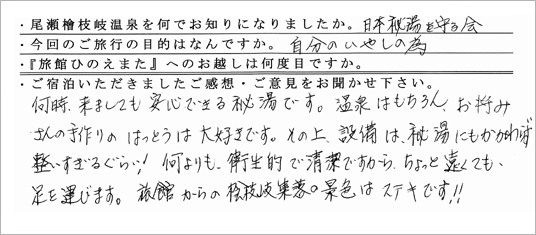 ・尾瀬檜枝岐温泉を何でお知りになりましたか。日本秘湯を守る会
・今回のご旅行の目的はなんですか。自分のいやしの為
・『旅館ひのえまた』へのお越しは何度目ですか。
・ご宿泊いただきましたご感想・ご意見をお聞かせ下さい。
何時、来ましても安心できる秘湯です。温泉はもちろん、お袴み
さんの手作りのはっとうは大好きです。その上、設備は、秘湯にもかかわらず
整いすぎるぐらい！何よりも、衛生的で清潔ですから、ちょっと遠くても、
足を運びます。旅館からの桧枝岐集落の景色はステキです!!